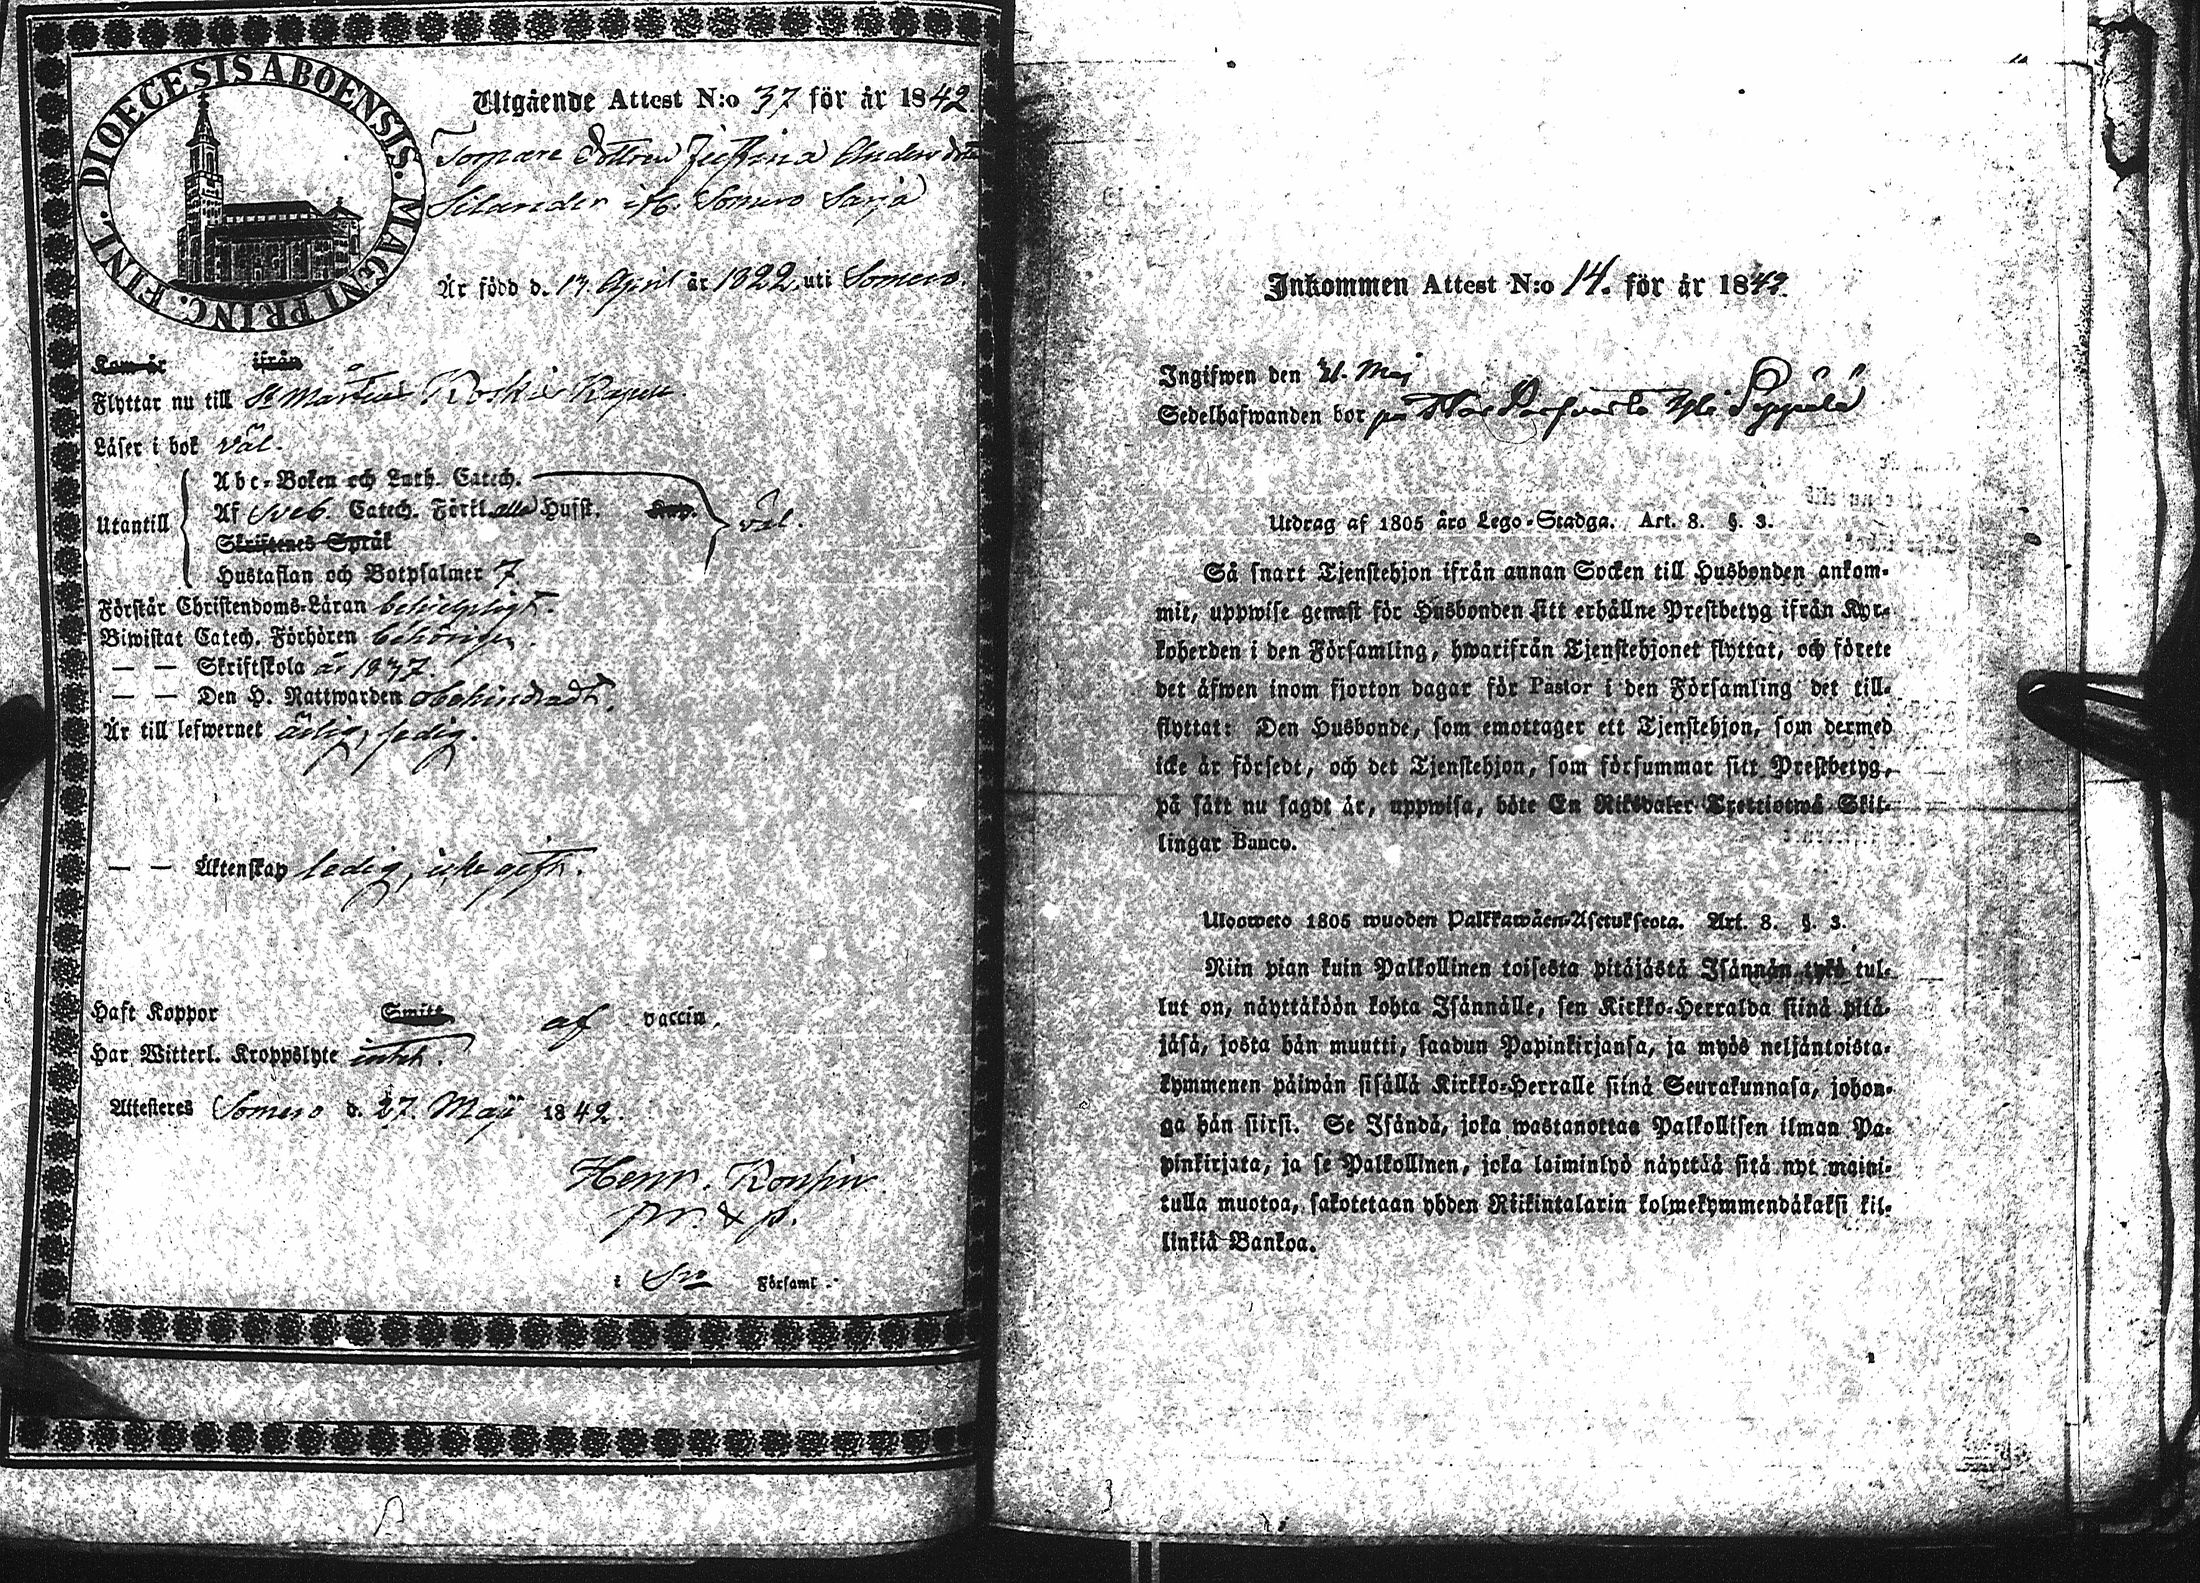 DIOECESIS ABOENSIS. MAGNI PRINC. FINL.
Utgående Attest N:o 37 för år 1842
Torpare Dottren Justina Anders dtr
Selander ifr. Somero Sarja
Är född d. 17 April år 1822 uti Somero.
Kom år ifrån
Flyttar nu till St Mårtens Koskis Kapell.
Läser i bok väl.
Utantill
Abc-Boken och Luth. Catech.
Af Sveb. Catech. Förkl. alla Hufst. Kap. väl.
Skriftenes Språk
Hustaflan och Botpsalmer 7
Förstår Christendoms-Läran behjelpligt.
Biwistat Catech. Förhören behörigen.
— — Skriftskola år 1837.
— — Den H. Nattwarden obehindradt.
Är till lefwernet ärlig, fredig.
— — Äktenskap ledig, icke gift.
Haft Koppor Smitt af vaccin.
Har Witterl. Kroppslyte intet.
Attesteres Somero d. 27. Maji 1842.
Henr.
i So Forsaml.
Inkommen Attest N:o 14. för år 1842.
Ingifwen den 31. Maj
Sedelhafwanden bor på Yli Seppälä
Utdrag af 1805 års Lego-Stadga. Art. 8. §. 3.
Så snart Tjenstehjon ifrån annan Socken till Husbonden ankom-
mit, uppwise genast för Husbonden sitt erhållne Prestbetyg ifrån Kyr-
koherden i den Församling, hwarifrån Tjenstehjonet flyttat, och förete
det äfwen inom fjorton dagar för Pastor i den Församling det till-
flyttat: Den Husbonde, som emottager ett Tjenstehjon, som dermed
icke är försedt, och det Tjenstehjon, som försummar sitt Prestbetyg,
på sätt nu sagdt är, uppwisa, böte En Riksdaler Trettiotwå Skil-
lingar Banco.
Uloosweto 1805 wuoden Palkkawäen-Asetuksesta. Art. 8. §. 3.
Niin pian kuin Palkollinen toisesta pitäjästä Isännän tykö tul-
lut on, näyttäköön kohta Isännälle, sen Kirkko-Herralda siinä pitä-
jäsä, josta hän muutti, saadun Papinkirjansa, ja myös neljäntoista-
kymmenen päiwän sisällä Kirkko-Herralle siinä Seurakunnasa, johon-
ga hän siirsi. Se Isändä, joka wastanottaa Palkollisen ilman Pa-
pinkirjata, ja se Palkollinen, joka laiminlyö näyttää sitä nyt maini-
tulla muotoa, sakotetaan yhden Riikintalarin kolmekymmendäkaksi kil-
linkiä Bankoa.